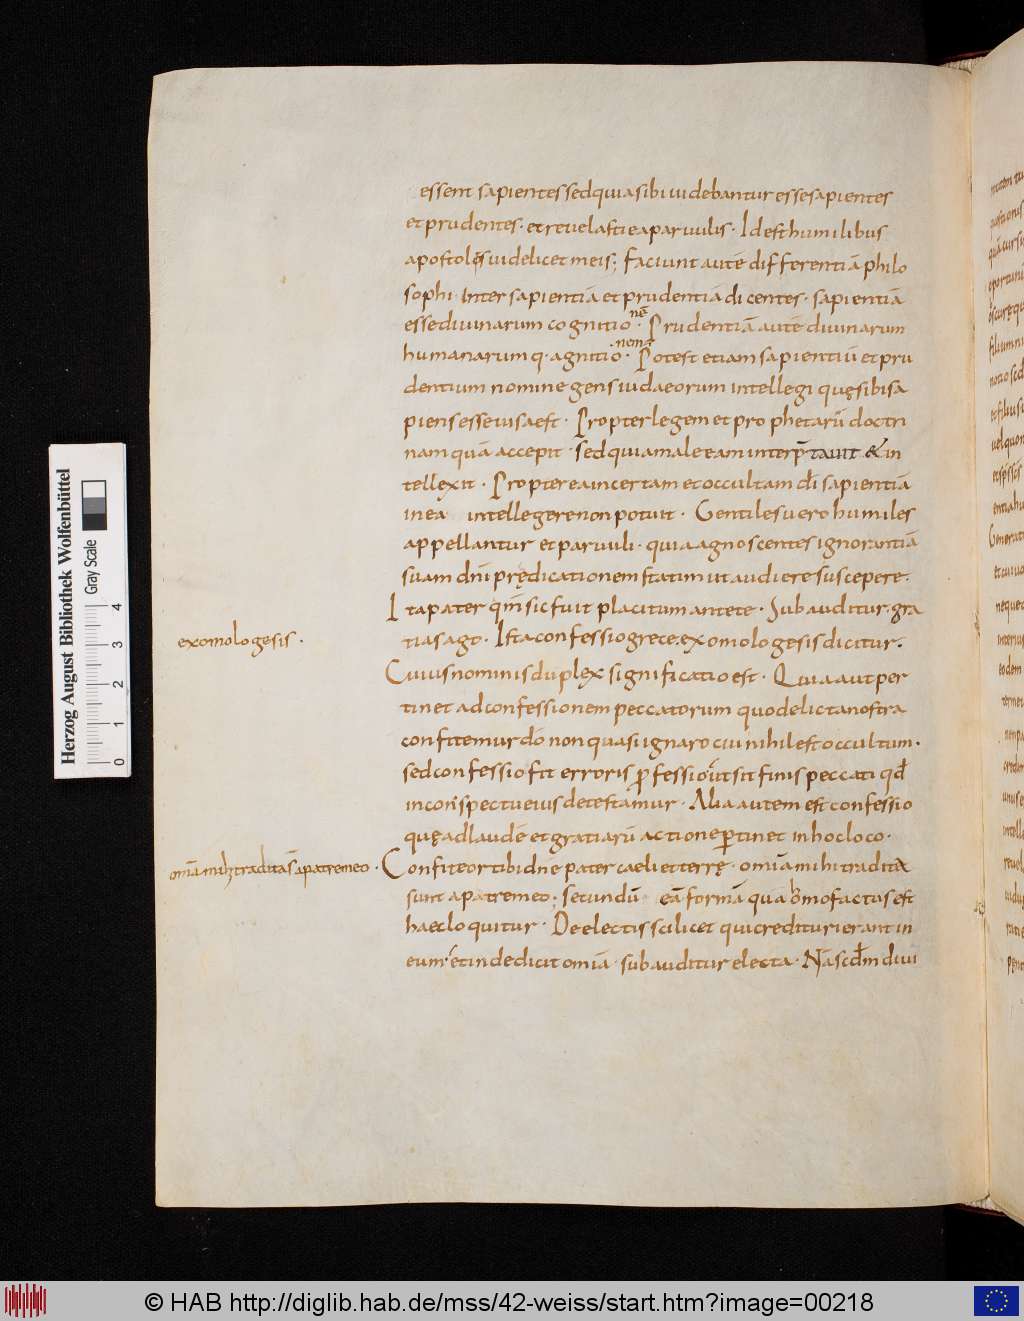 essent sapientes sed quia sibi uidebantur esse sapientes
et prudentes · et reuelasti ea paruulis · Id est humilibus
apostolis uidelicet meis; Faciunt autē differentiā philo
sophi · Inter sapientiā et prudentiā dicentes · sapientiā
esse diuinarum cognitionē · Prudentiā autē diuinarum
humanarumq · agnitionem · Potest etiam sapientiū et pru
dentium nomine gens iudaeorum intellegi quę sibi sa
piens esse uisa est · Propter legem et prophetarū doctri
nam quā accepit · sed quia male eam interp̄tauit & in
tellexit · Propterea incertam et occultam dī sapientiā
in ea intellegere non potuit · Gentiles uero humiles
appellantur et paruuli · quia agnoscentes ignorantiā
suam dnī prędicationem statim ut audiere suscepere ·
Ita pater qm̄ sic fuit placitum ante te · Subauditur · gra
tias ago · Ista confessio grece exomologesis dicitur ·
exomologesis ·
Cuius nominis duplex significatio est · Quia aut per
tinet ad confessionem peccatorum quo delicta nostra
confitemur dō non quasi ignaro cui nihil est occultum ·
sed confessio fit erroris p̄fessio ut sit finis peccati qđ
in conspectu eius detestamur · Alia autem est confessio
quę ad laudē et gratiarū actione p̄tinet in hoc loco ·
omīa mihi tradita s̄ a patre meo ·
Confiteor tibi dnē pater caeli et terrę · omīa mihi tradita
sunt a patre meo; secundū eā formā qua homo factus est
haec loquitur · De electis scilicet qui credituri erant in
eum · et inde dicit omīa · subauditur electa · Nā scđm diui
© HAB http://diglib.hab.de/mss/42-weiss/start.htm?image=00218
Herzog August Bibliothek Wolfenbüttel
Gray Scale
0 1 2 3 4